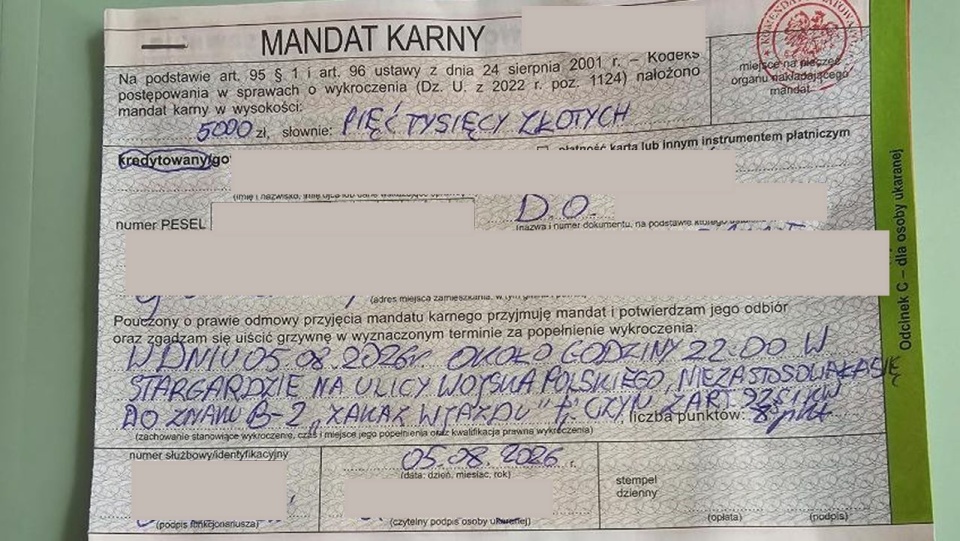 MANDAT KARNY
Na podstawie art. 95 § 1 i art. 96 ustawy z dnia 24 sierpnia 2001 r. – Kodeks
postępowania w sprawach o wykroczenia (Dz. U. z 2022 r. poz. 1124) nałożono
mandat karny w wysokości:
miejsce na pieczęć
organu nakładającego
mandat
5000 zł, słownie: PIĘĆ TYSIĘCY ZŁOTYCH
kredytowany/go
płatność kartą lub innym instrumentem płatniczym
D.O.
numer PESEL
(nazwa i numer dokumentu, na podstawie którego
(adres miejsca zamieszkania,
Pouczony o prawie odmowy przyjęcia mandatu karnego przyjmuję mandat i potwierdzam jego odbiór
oraz zgadzam się uiścić grzywnę w wyznaczonym terminie za popełnienie wykroczenia:
W DNIU 05.08.2026r. OKOŁO GODZINY 22:00 W
STARGARDZIE NA ULICY WOJSKA POLSKIEGO, NIEZASTOSOWAŁA SIĘ
DO ZNAKU B-2 „ZAKAZ WJAZDU" tj. CZYN Z ART. 92 § 1 KW
, liczba punktów: 8 pkt
(zachowanie stanowiące wykroczenie, czas i miejsce jego popełnienia oraz kwalifikacja prawna wykroczenia)
numer służbowy/identyfikacyjny
05.08.2026 r.
(data: dzień, miesiąc, rok)
stempel
dzienny
(podpis funkcjonariusza)
(czytelny podpis osoby ukaranej)
(opłata)
(podpis)
Odcinek C – dla osoby ukaranej